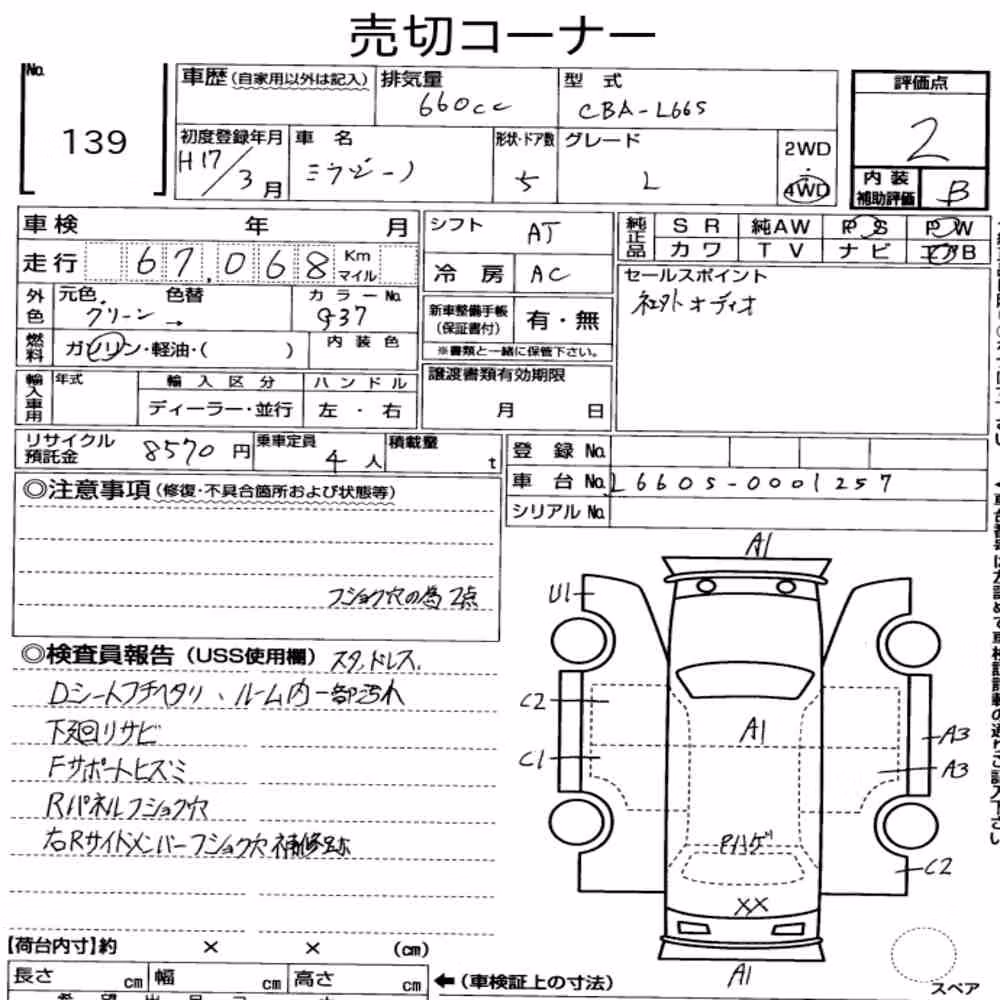 売切コーナー
No.
139
車歴(自家用以外は記入)
排気量
660cc
型 式
CBA-L665
評価点
2
初度登録年月
H17/3月
車 名
ミラジーノ
形状・ドア数
5
グレード
L
2WD
・
4WD
内 装
補助評価
B
車 検 年 月
シフト
AT
純正品
S R 純AW P S P W
カワ T V ナビ エアB
走行 67,068 Km
マイル
冷 房
AC
セールスポイント
社外オーディオ
外色
元色 色替
グリーン →
カラーNo.
G37
新車整備手帳
(保証書付)
有・無
※書類と一緒に保管下さい。
燃料
ガソリン・軽油・( )
内 装 色
輸入車用
年式
輸 入 区 分
ハ ン ド ル
ディーラー・並行
左 ・ 右
譲渡書類有効期限
月 日
リサイクル
預託金
8570 円
乗車定員
4 人
積載量
t
登 録 No.
車 台 No. L660S-0001257
シリアル No.
◎注意事項(修復・不具合箇所および状態等)
フショク穴の為 2点
◎検査員報告(USS使用欄) スタッドレス.
Dシートフチヘタリ、ルーム内一部汚れ
下廻りサビ
Fサポートヒズミ
Rパネルフショク穴
右Rサイドメンバーフショク穴補修跡
A1
U1
C2
A1
A3
C1
A3
Pハゲ
C2
XX
A1
スペア
【荷台内寸】約 × × (cm)
長さ cm 幅 cm 高さ cm
←(車検証上の寸法)